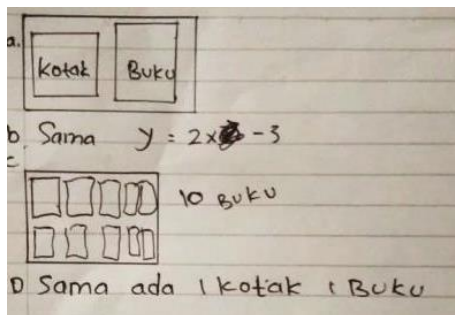 a.
Kotak Buku
b. Sama y = 2x - 3
c
10 Buku
D Sama ada 1 kotak 1 Buku